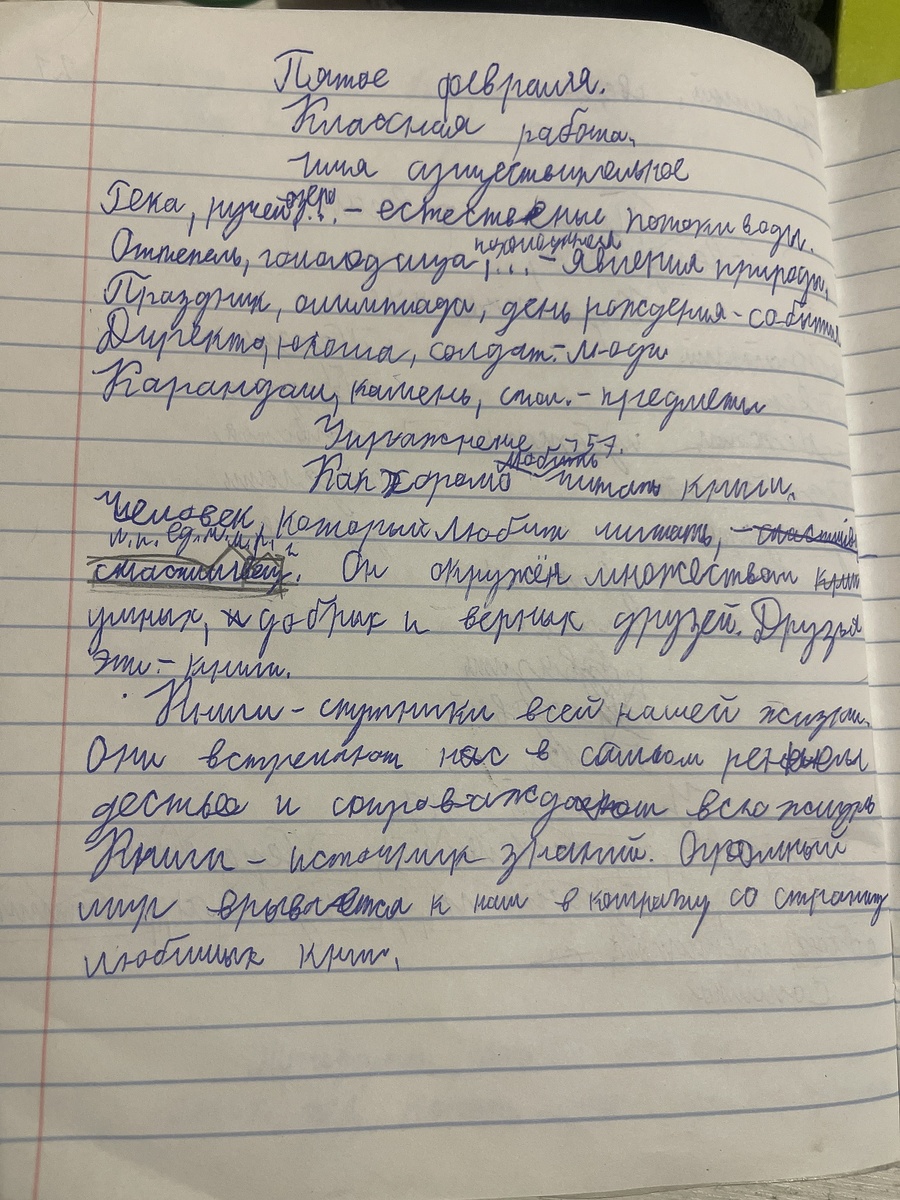 Пятое февраля.
Классная работа.
Имя существительное
Река, ручей, озеро... - естественые потоки воды.
Оттепель, гололодица, ... - явления природы.
Праздник, олимпиада, день рождения - события
Директо, юноша, солдат. - люди
Карандаш, камень, стол. - предметы
Упражнение 157.
Как хорошо любить читать книги.
Человек, который любит читать, - счастливый
и.п. ед.ч. м.р.
счастливый. Он окружён множеством книг
умных, и добрык и верник друзей. Друзья
эти - книги.
Книги - спутники всей нашей жизни.
Они встречают нас в самом ренем
дестве и сопроваждают всю жизнь
Книги - источник знаний. Огромный
мир врывается к нам в комнату со страниц
любимык книг.